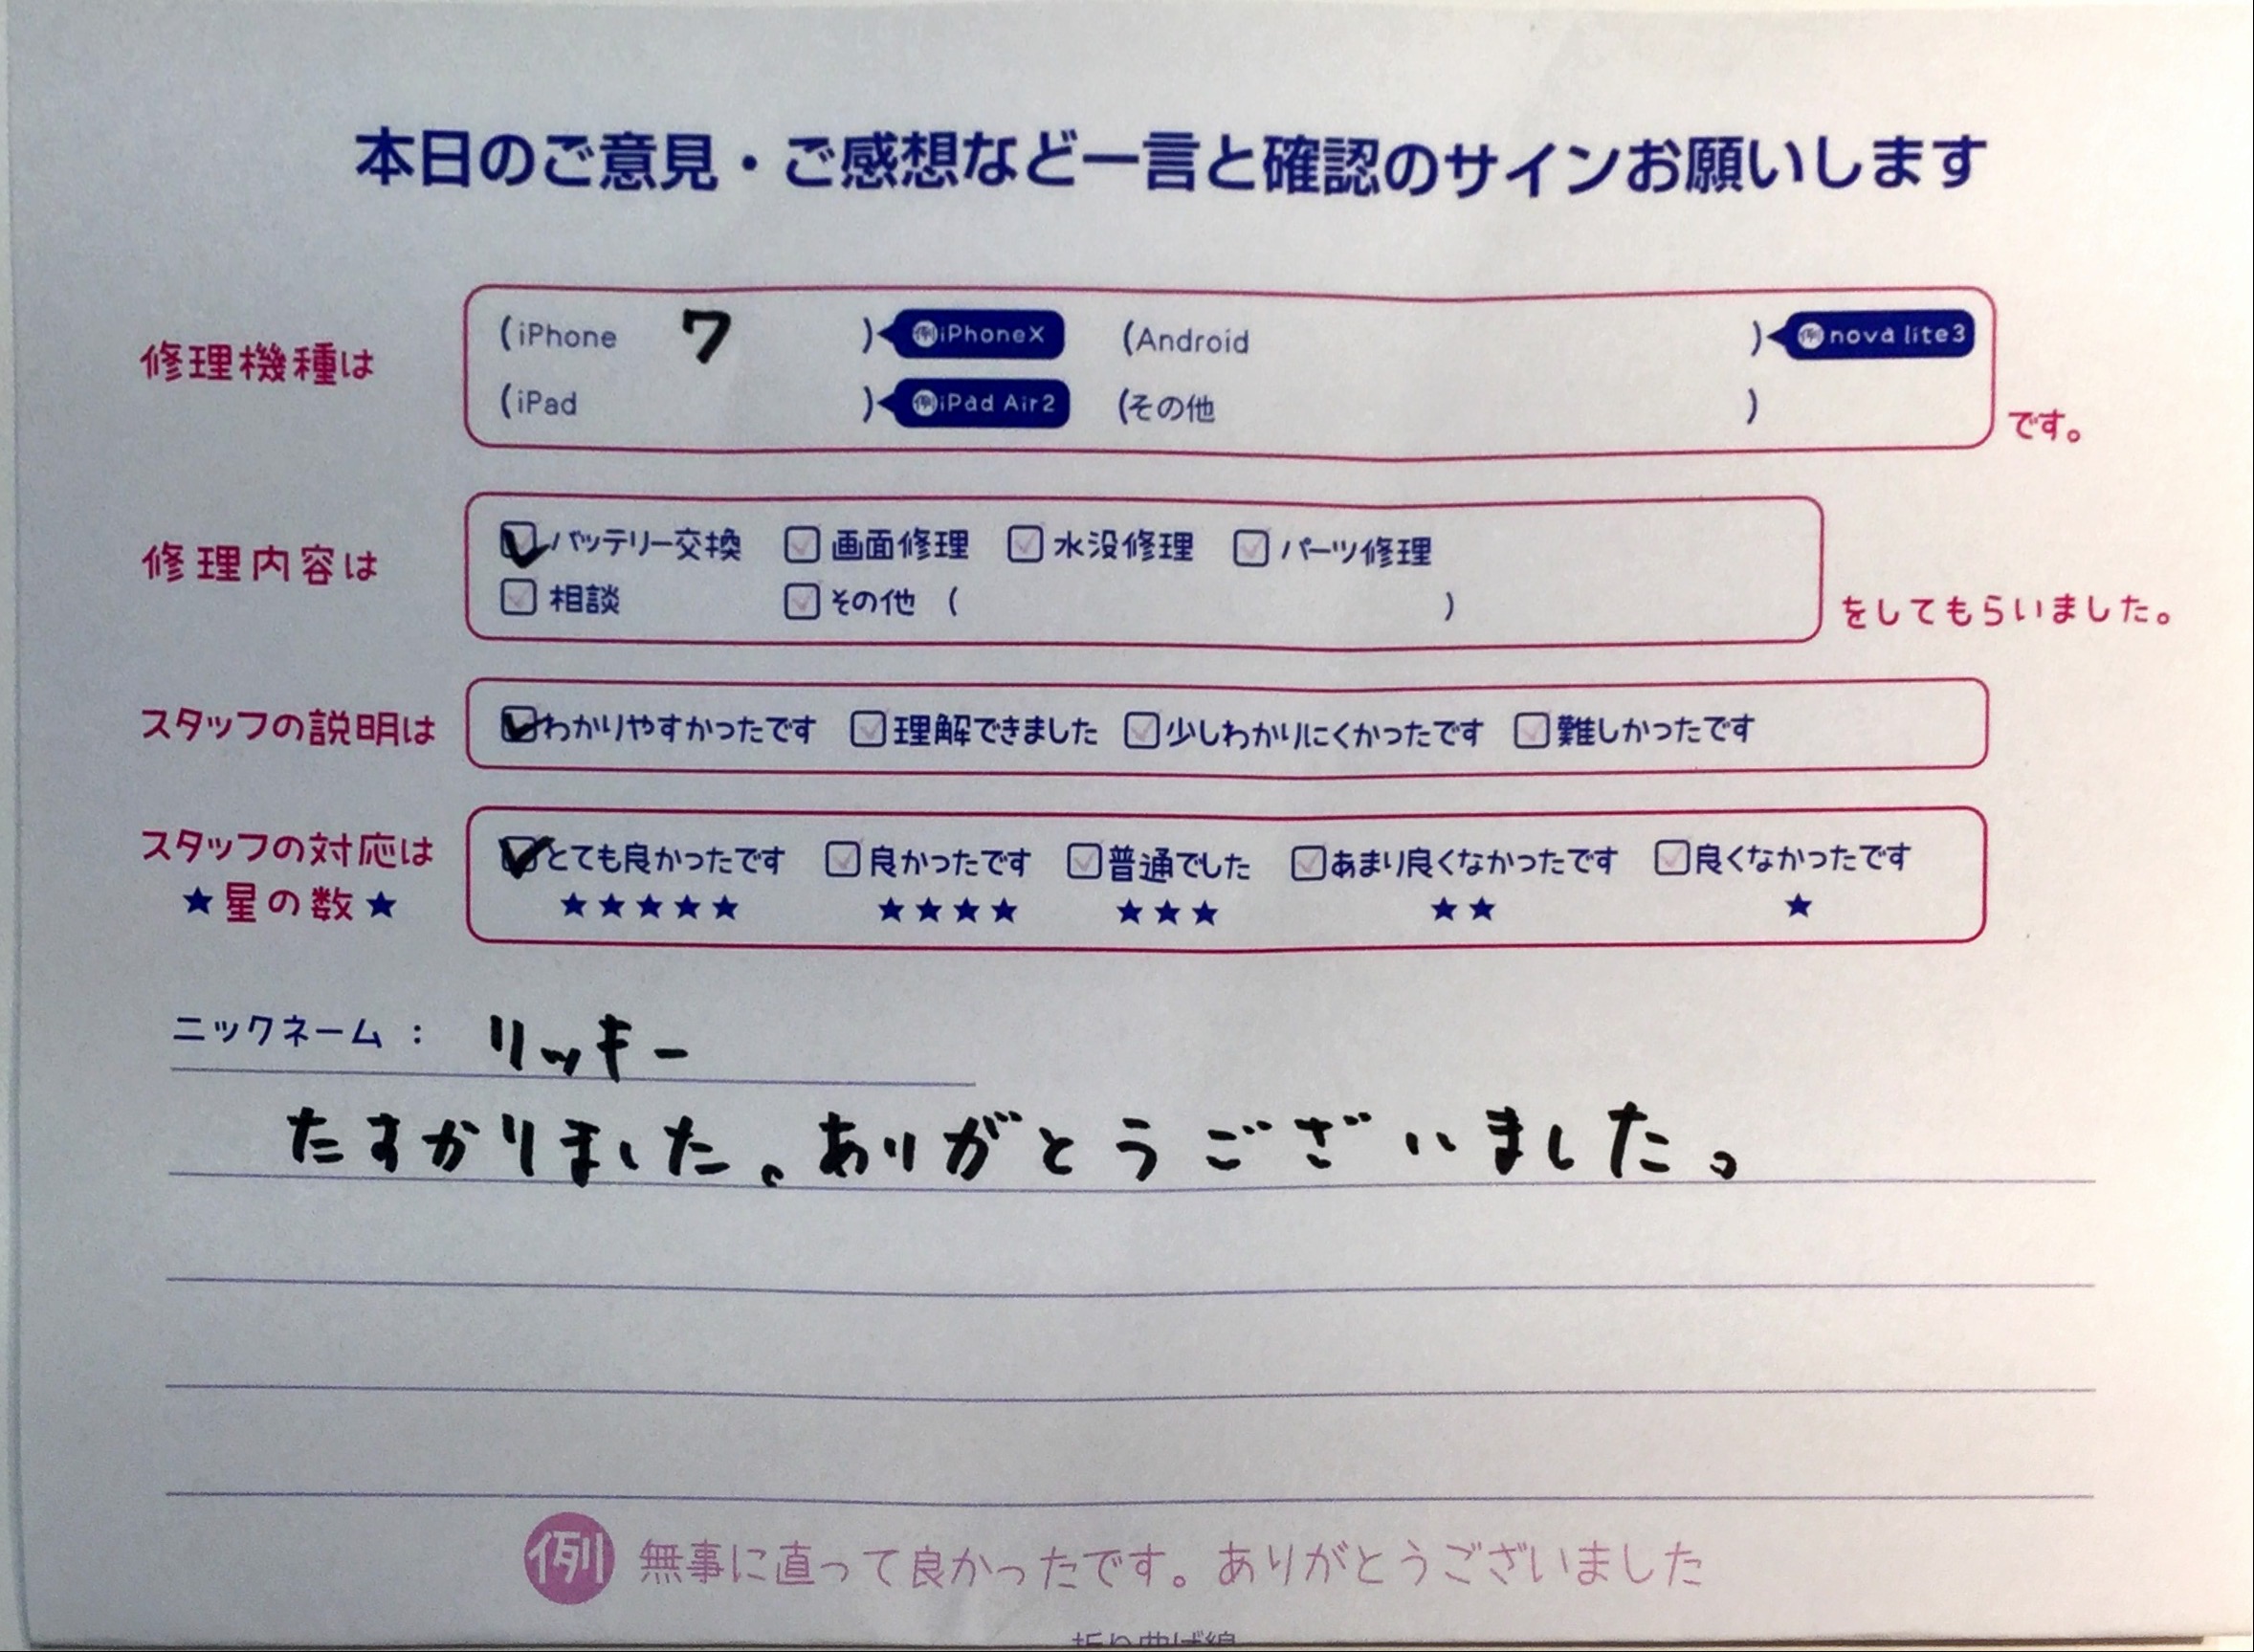 本日のご意見・ご感想など一言と確認のサインお願いします
修理機種は (iPhone 7 ) 例iPhoneX (Android ) 例nova lite3
(iPad ) 例iPad Air2 (その他 ) です。
修理内容は バッテリー交換 画面修理 水没修理 パーツ修理
相談 その他 ( ) をしてもらいました。
スタッフの説明は わかりやすかったです 理解できました 少しわかりにくかったです 難しかったです
スタッフの対応は とても良かったです 良かったです 普通でした あまり良くなかったです 良くなかったです
★星の数★ ★★★★★ ★★★★ ★★★ ★★ ★
ニックネーム : リッキー
たすかりました。ありがとうございました。
例 無事に直って良かったです。ありがとうございました
折り曲げ線